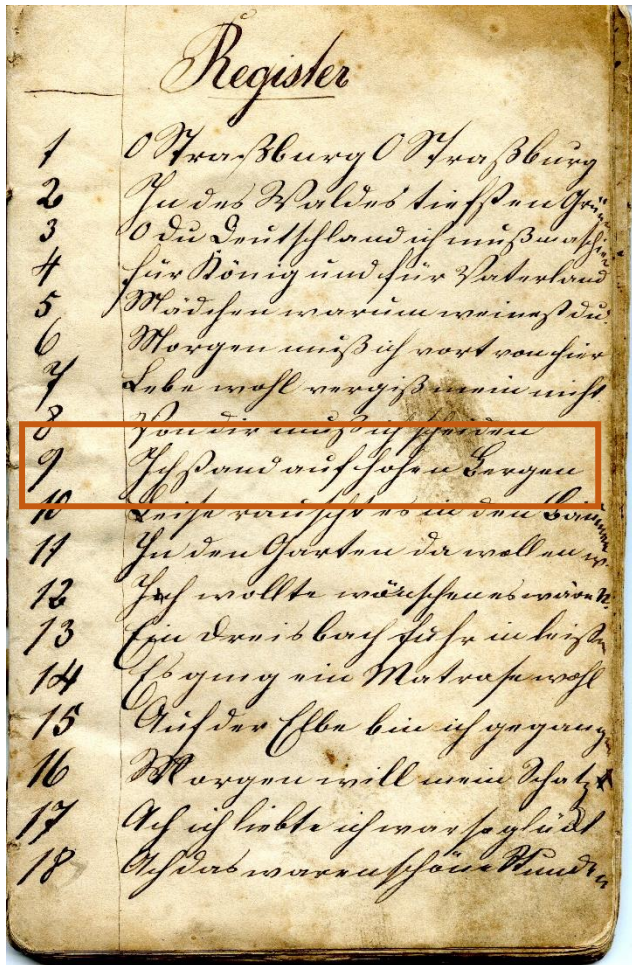 Register
1 O Straßburg O Straßburg
2 In des Waldes tiefsten Grün
3 O du Deutschland ich muß maschir
4 für König und für Vaterland
5 Mädchen warum weinest du
6 Morgen muß ich vort von hier
7 Lebe wohl vergiß mein nicht
8 Von dir muß ich scheiden
9 Ich stand auf hohen Bergen
10 Leise rauscht es in den Bäumen
11 In den Garten da wollen w
12 Ich wollte wünschen es wäre N
13 Ein dreisbach fuhr in
14 Es ging ein Matrose wohl
15 Auf der Elbe bin ich gegang
16 Morgen will mein Schatz
17 Ach ich liebte ich war so glückl
18 Ach das waren schöne Stunden